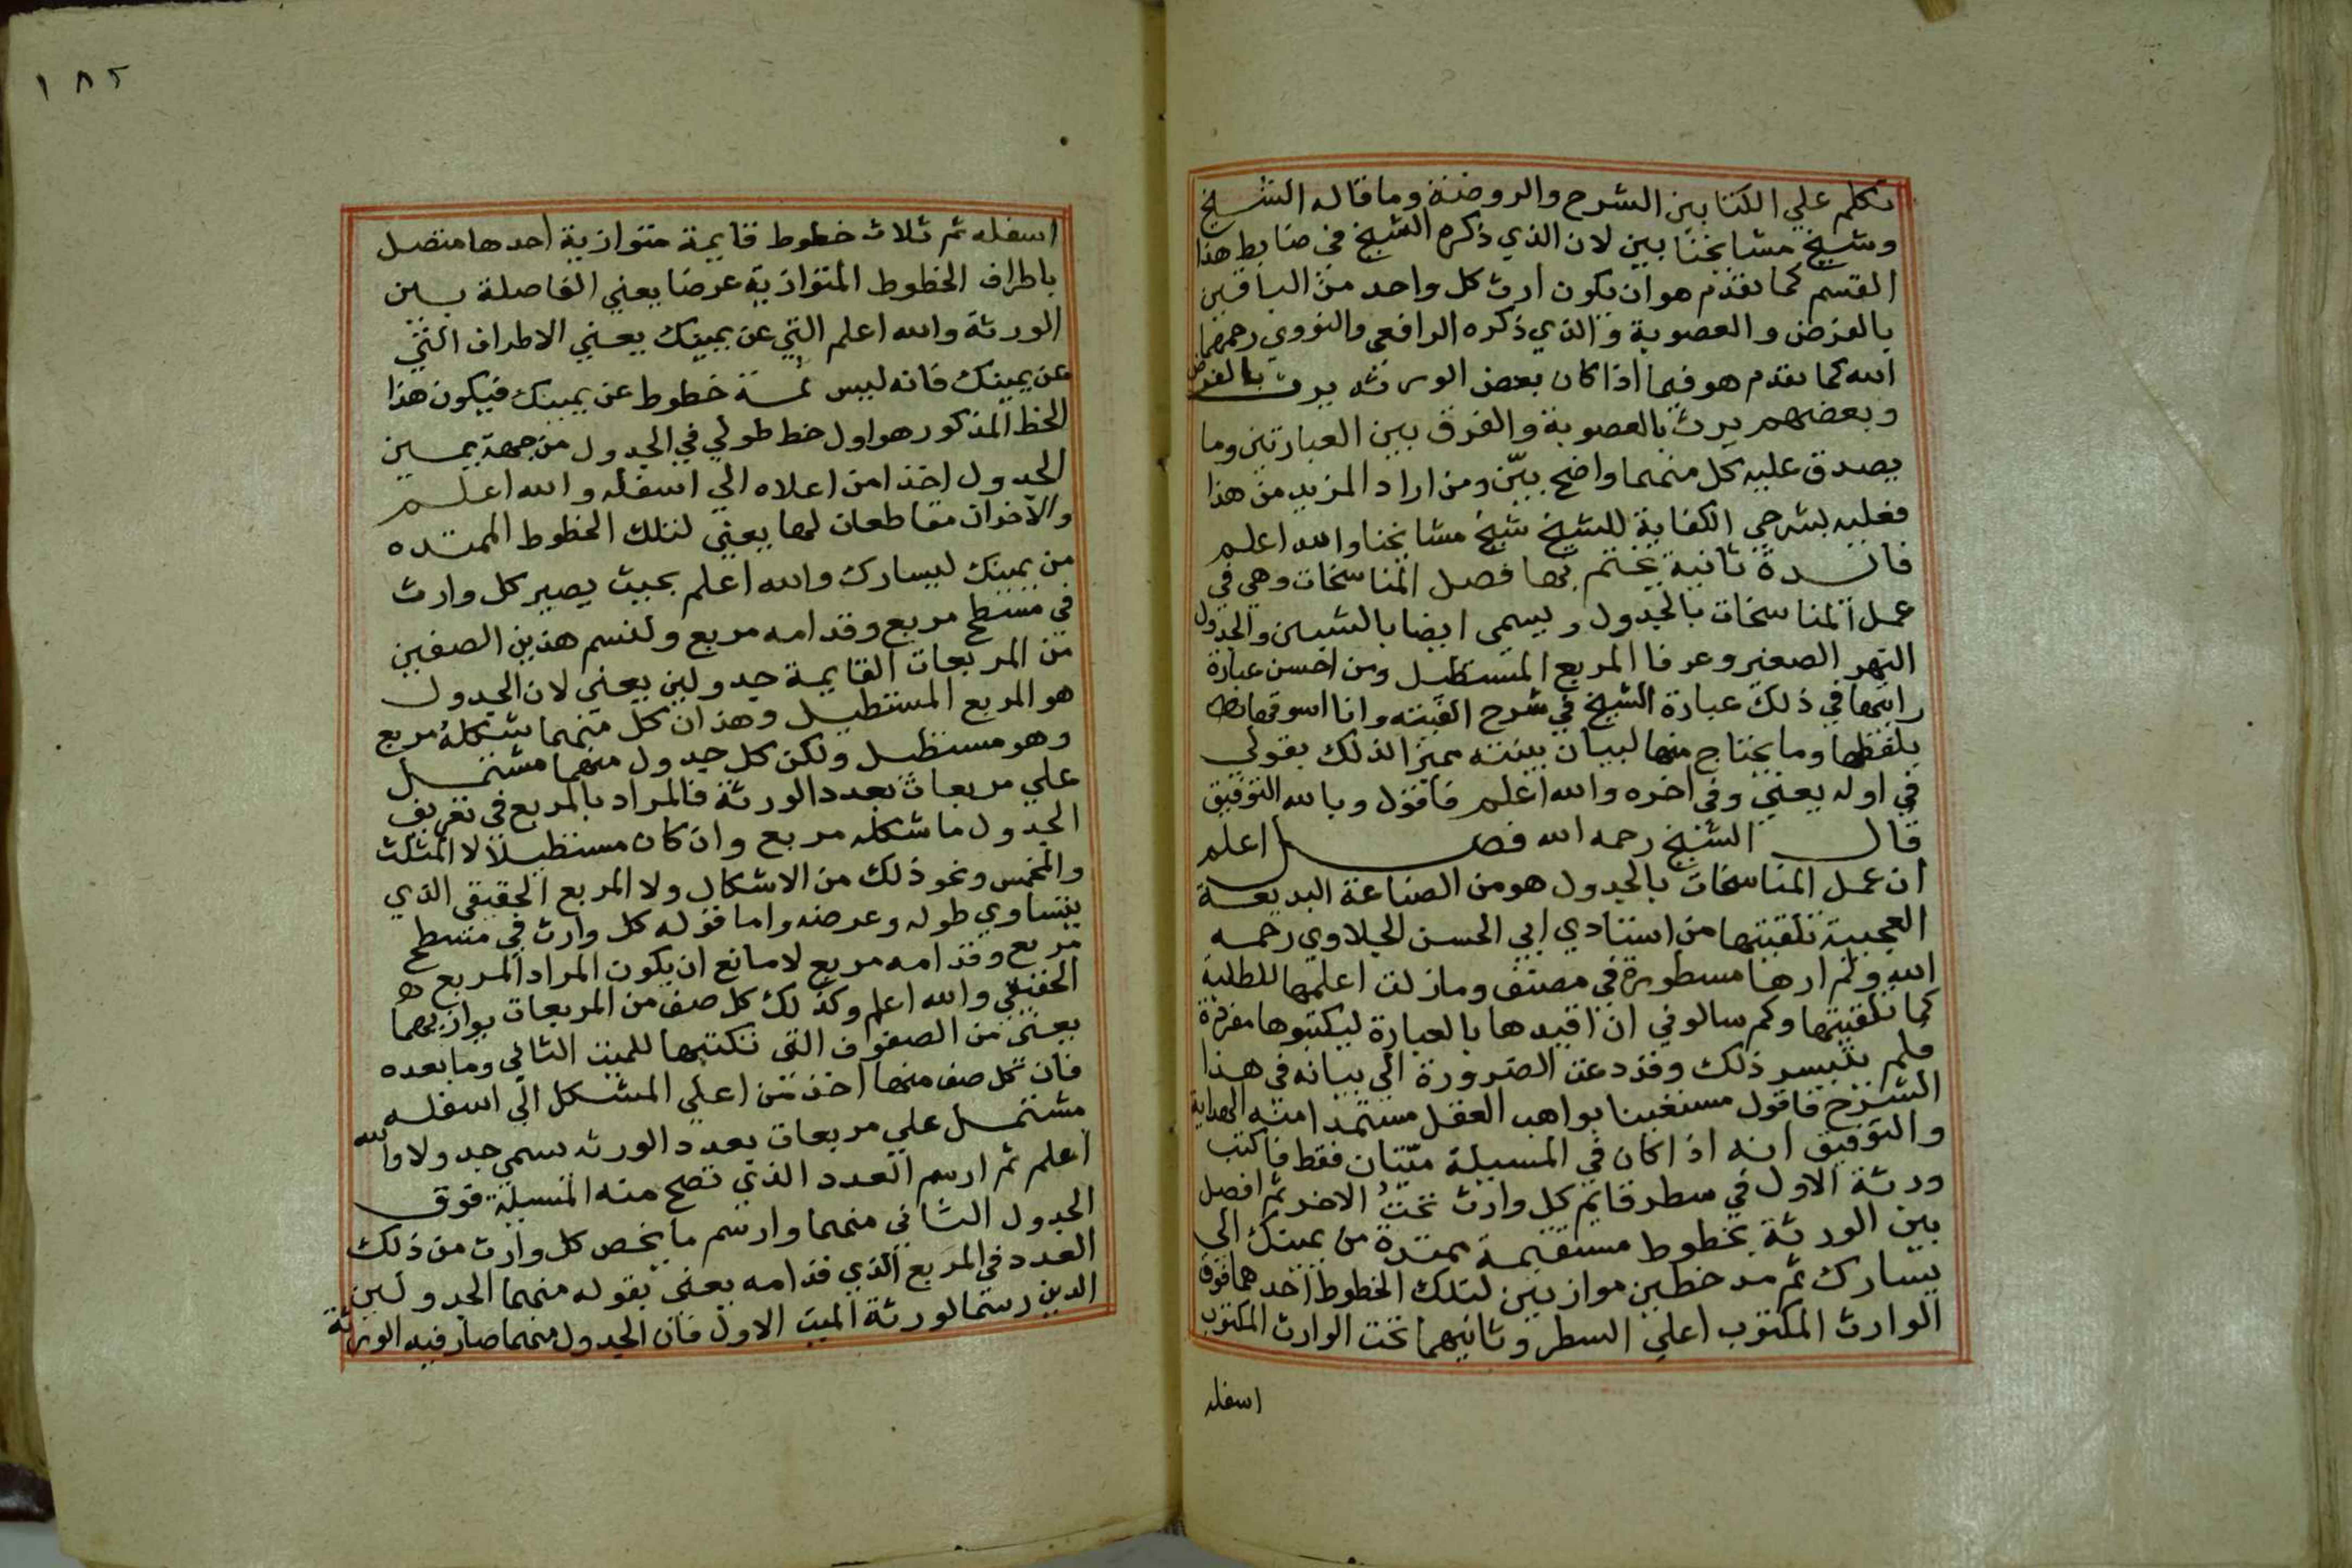 تكلم علي الكتابين الشرح والروضة وما قاله الشيخ
وشيخ مشايخنا بين لان الذي ذكره الشيخ في ضابط هذا
القسم كما تقدم هو ان يكون ارث كل واحد من الباقين
بالفرض والعصوبة والذي ذكره الرافعي والنووي رحمهما
الله كما تقدم هو فيما اذا كان بعض الورثه يرث بالفرض
وبعضهم يرث بالعصوبة والفرق بين العبارتين وما
يصدق عليه كل منهما واضح بيّن ومن اراد المزيد من هذا
فعليه بشرحي الكفاية للشيخ شيخ مشايخنا والله اعلم
فائدة ثانية يختم بها فصل المناسخات وهي في
عمل المناسخات بالجدول ويسمى ايضا بالشباك والجدول
النهر الصغير وعرفا المربع المستطيل ومن احسن عبارة
رايتها في ذلك عبارة الشيخ في شرح الفيته وانا اسوقها
بلفظها وما يحتاج منها لبيان بينته مميزا لذلك بقولي
في اوله يعني وفي اخره والله اعلم فاقول وبالله التوفيق
قال الشيخ رحمه الله فصل اعلم
ان عمل المناسخات بالجدول هو من الصناعة البديعة
العجيبة تلقيتها من استاذي ابي الحسن الجلاوي رحمه
الله ولم ارها مسطورة في مصنف وما زلت اعلمها للطلبة
كما تلقيتها وكم سالوني ان اقيدها بالعبارة ليكتبوها مفردة
فلم يتيسر ذلك وقد دعت الضرورة الي بيانه في هذا
الشرح فاقول مستعينا بواهب العقل مستمدا منه الهداية
والتوفيق انه اذا كان في المسيلة ميّتان فقط فاكتب
ورثة الاول في سطر قايم كل وارث تحت الاخر ثم افصل
بين الورثة بخطوط مستقيمة ممتدة من يمينك الي
يسارك ثم مد خطين موازيين لتلك الخطوط احدهما فوق
الوارث المكتوب اعلي السطر وثانيهما تحت الوارث المكتوب
اسفله
١٨٢
اسفله ثم ثلاث خطوط قايمة متوازية احدها متصل
باطراف الخطوط المتوازية عرضا يعني الفاصلة بين
الورثة والله اعلم التي عن يمينك يعني الاطراف التي
عن يمينك فانه ليس ثمة خطوط عن يمينك فيكون هذا
الخط المذكور هو اول خط طولي في الجدول من جهة يمين
الجدول اخذا من اعلاه الي اسفله والله اعلم
والاخران مقاطعان لها يعني لتلك الخطوط الممتده
من يمينك ليسارك والله اعلم بحيث يصير كل وارث
في مسطح مربع وقدامه مربع ولنسم هذين الصفين
من المربعات القايمة جدولين يعني لان الجدول
هو المربع المستطيل وهذان كل منهما شكله مربع
وهو مستطيل ولكن كل جدول منهما مشتمل
علي مربعات بعدد الورثة فالمراد بالمربع في تعريف
الجدول ما شكله مربع وان كان مستطيلا لا المثلث
والمخمس ونحو ذلك من الاشكال ولا المربع الحقيقي الذي
يتساوي طوله وعرضه واما قوله كل وارث في مسطح
مربع وقدامه مربع لا مانع ان يكون المراد المربع
الحقيقي والله اعلم وكذلك كل صف من المربعات يوازيهما
يعني من الصفوف التي نكتبها للميت الثاني وما بعده
فان كل صف منها اخذ من اعلي المشكل الي اسفله
مشتمل علي مربعات بعدد الورثه سمي جدولا والله
اعلم ثم ارسم العدد الذي تصح منه المسيلة فوق
الجدول الثاني منهما وارسم ما يخص كل وارث من ذلك
العدد في المربع الذي قدامه يعني بقوله منهما الجدولين
الذين رسمتا لورثة الميت الاول فان الجدول منهما صار فيه الورثة